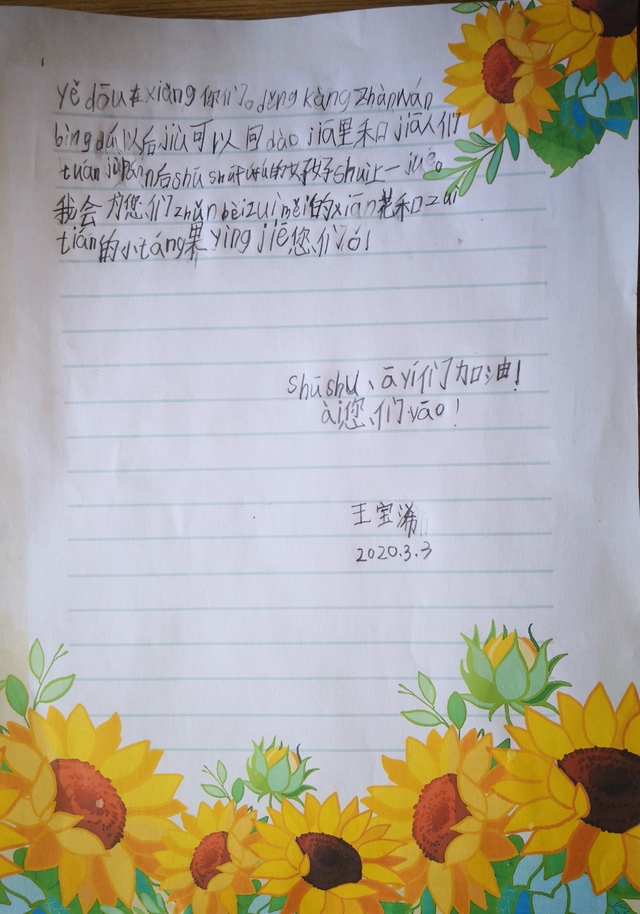 yě dōu在xiǎng你们。děng kàng zhàn wán
bìng dú以后jiù可以回dào jiā里和jiā人们
tuán jù 后shū shū fú fú的好好shuì上一jué。
我会为您们zhǔn bèi zuì měi的xiān花和zuì
tián的小táng果yíng jiē您们ó!
shūshu、āyí们加油!
ài您们yāo!
王宝浠
2020.3.3